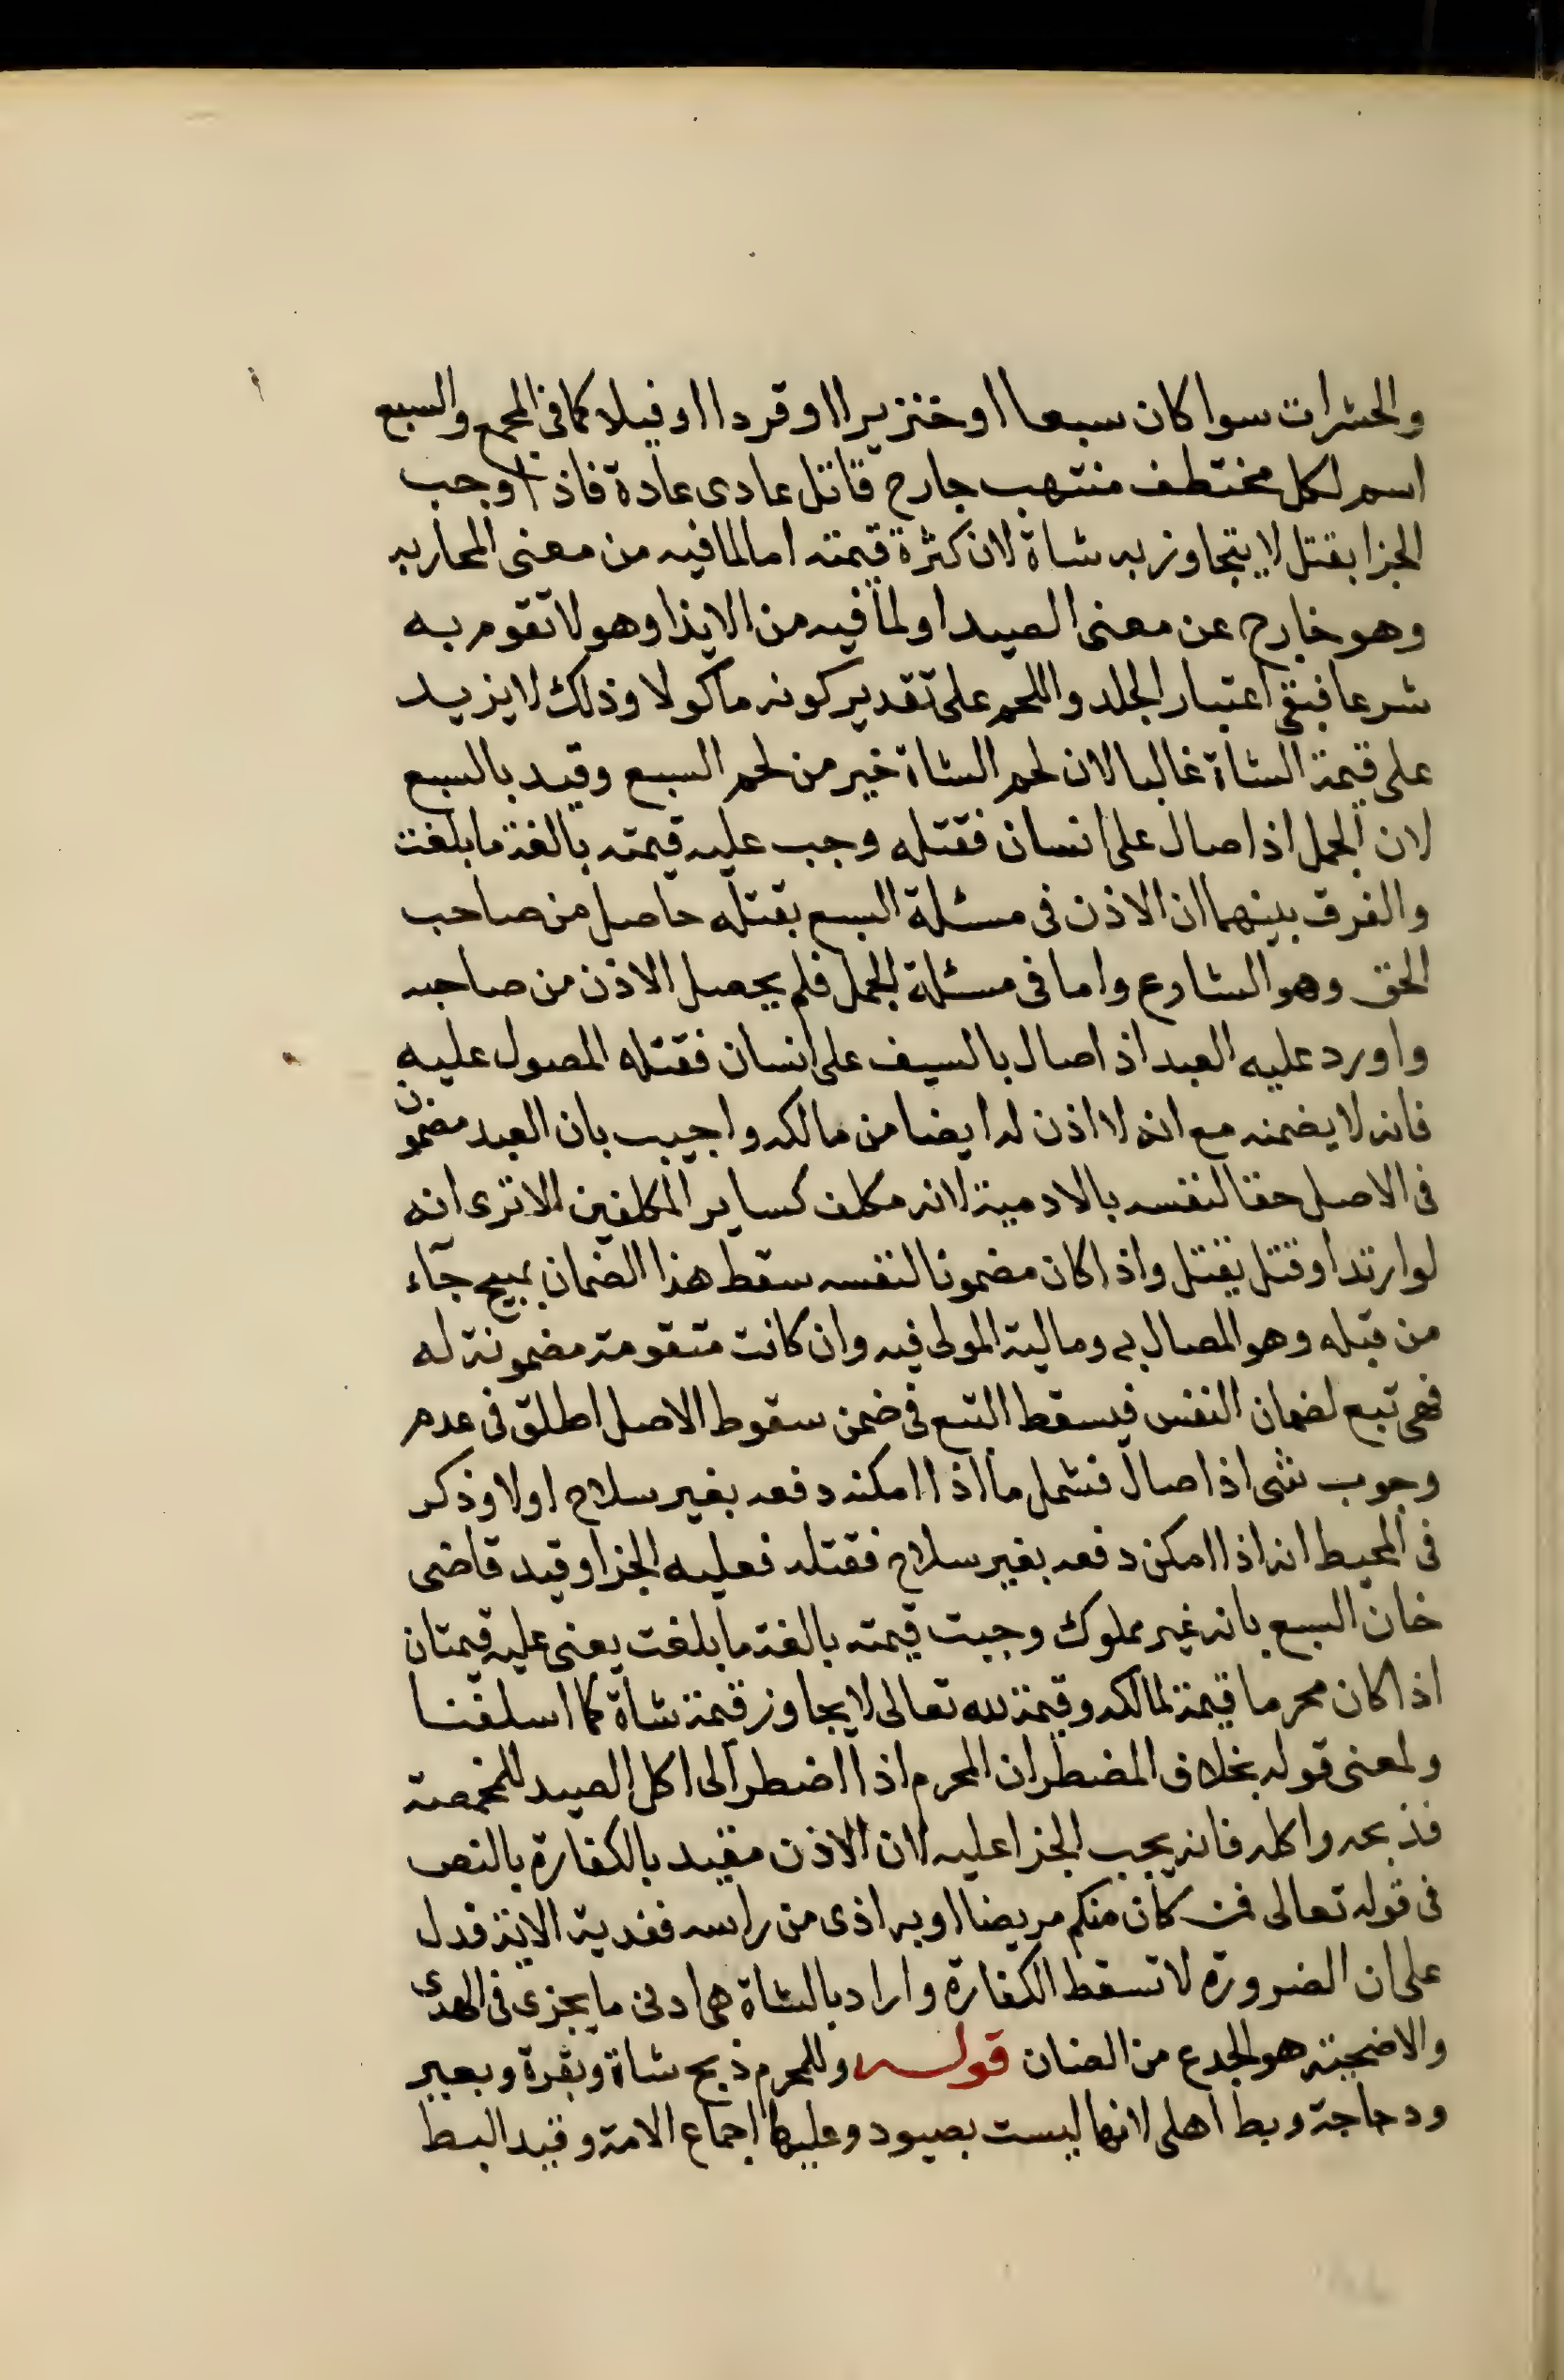 والحشرات سوا كان سبعا او خنزيرا او قردا او فيلا كما فى المجمع والسبع
اسم لكل مختطف منتهب جارح قاتل عادى عادة فاذا وجب
الجزا بقتل لا يتجاوز به شاة لان كثرة قيمته اما لما فيه من معنى المحاربه
وهو خارج عن معنى الصيد او لما فيه من الايذا وهو لا تقوم به
شرعا فبقى اعتبار الجلد واللحم على تقدير كونه ماكولا وذلك لا يزيد
على قيمة الشاة غالبا لان لحم الشاة خير من لحم السبع وقيد بالسبع
لان الجمل اذا صال على انسان فقتله وجب عليه قيمته بالغة ما بلغت
والفرق بينهما ان الاذن فى مسئلة السبع بقتله حاصل من صاحب
الحق وهو الشارع واما فى مسئلة الجمل فلم يحصل الاذن من صاحبه
واورد عليه العبد اذا صال بالسيف على انسان فقتله المصول عليه
فانه لا يضمنه مع انه لا اذن له ايضا من مالكه واجيب بان العبد مضمون
فى الاصل حقا لنفسه بالادمية لانه مكلف كساير المكلفين الا ترى انه
لو ارتد او قتل يقتل واذا كان مضمونا لنفسه سقط هذا الضمان بمبيح جآء
من قبله وهو المصال به ومالية المولى فيه وان كانت متقومة مضمونة له
فهى تبع لضمان النفس فيسقط التبع فى ضمن سقوط الاصل اطلق فى عدم
وجوب شى اذا صال فشمل ما اذا امكنه دفعه بغير سلاح اولا وذكر
فى المحيط انه اذا امكن دفعه بغير سلاح فقتله فعليه الجزا وقيد قاضى
خان السبع بانه غير مملوك وجبت قيمته بالغة ما بلغت يعنى عليه قيمتان
اذا كان محرما قيمة لمالكه وقيمة لله تعالى لا يجاوز قيمة شاة كما اسلفنا
ولمعنى قوله بخلاف المضطر ان المحرم اذا اضطر الى اكل الصيد للمخمصة
فذبحه واكله فانه يجب الجزا عليه لان الاذن مقيد بالكفارة بالنص
فى قوله تعالى فمن كان منكم مريضا او به اذى من راسه ففدية الاية فدل
على ان الضرورة لا تسقط الكفارة واراد بالشاة هى ادنى ما يجزى فى الهدى
والاضحية هو الجدع من الضان قوله وللمحرم ذبح شاة وبقرة وبعير
ودجاجة وبط اهلى لانها ليست بصيود وعليها اجماع الامة وقيد البط